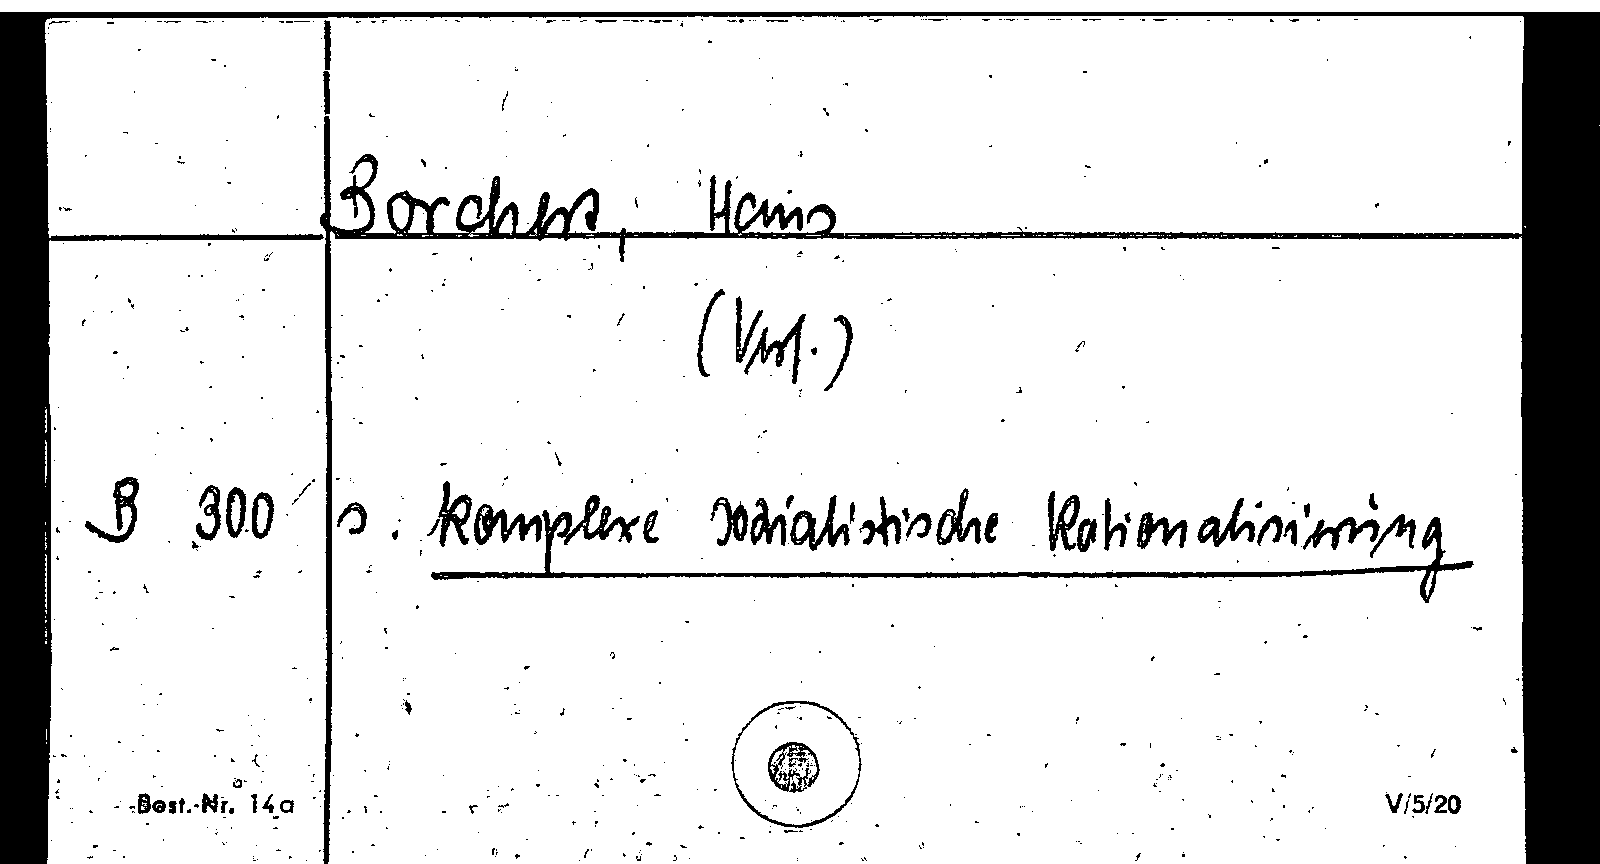 Borchert, Hans
(Verf.)
B 300 s. Komplexe sozialistische Rationalisierung
Best.-Nr. 14a V/5/20